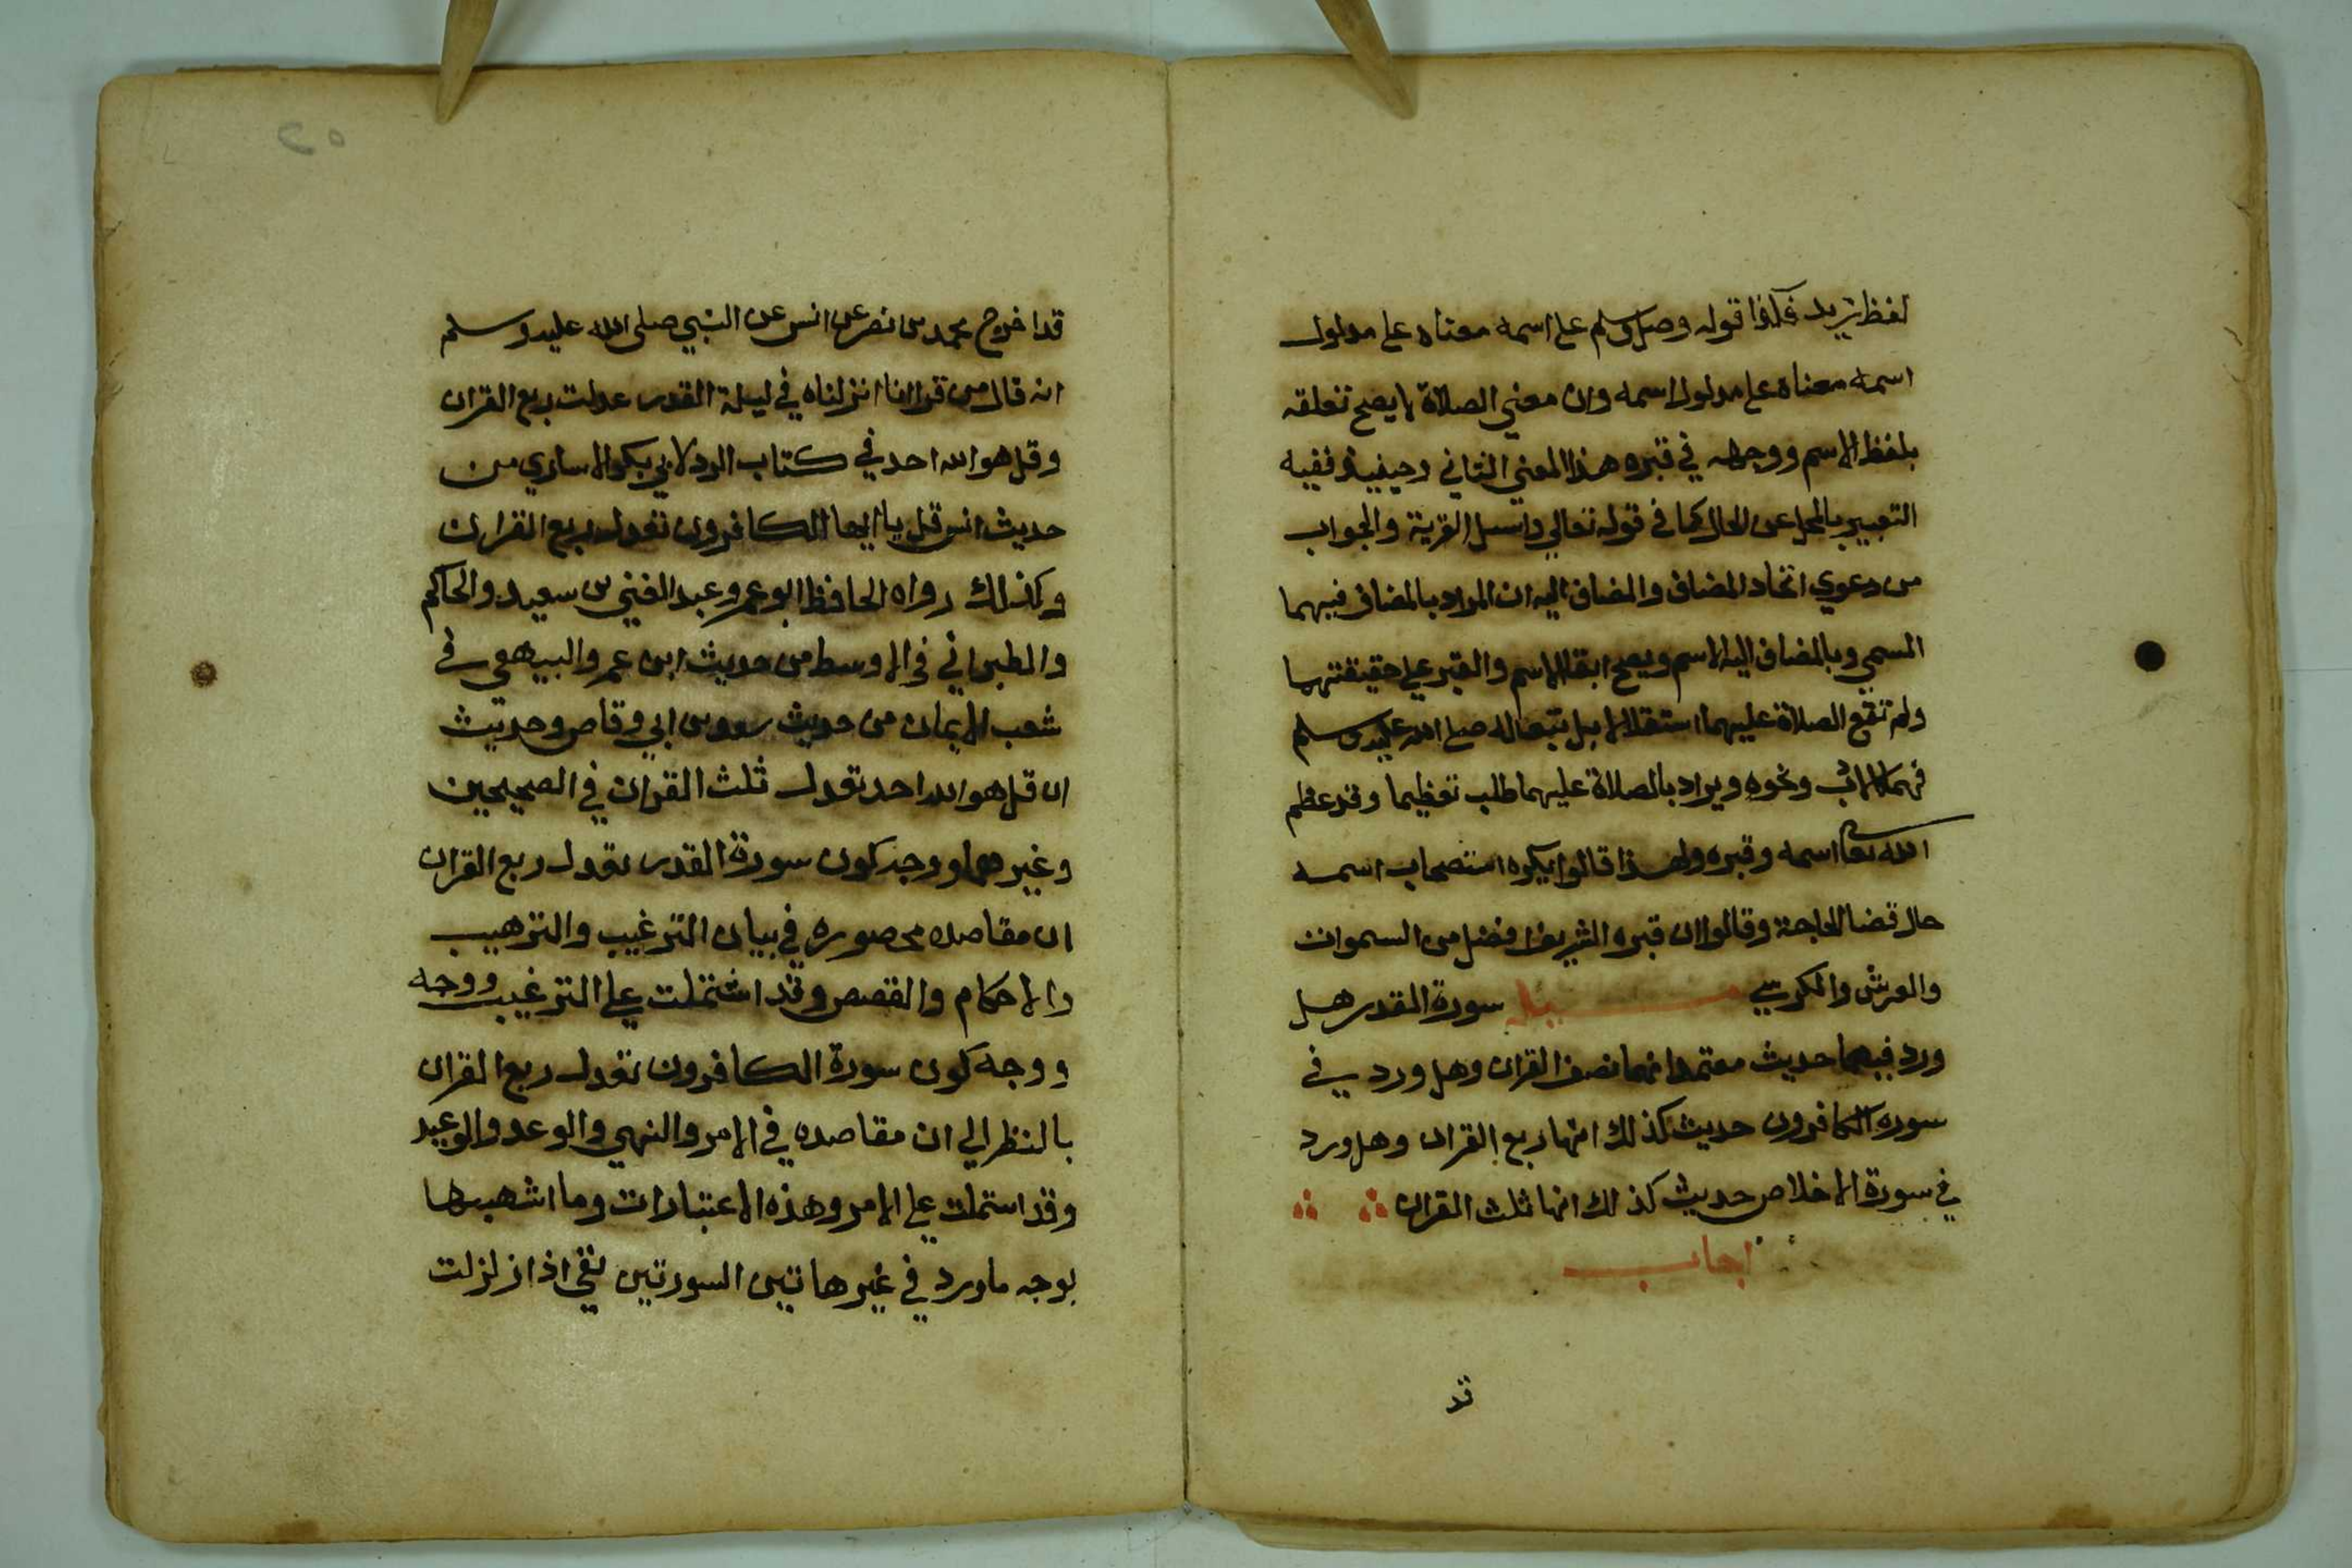 لفظ زيد فكذا قوله وصل وسلم على اسمه معناه على مدلول
اسمه معناه على مدلول اسمه وان معني الصلاة لا يصح تعلقه
بلفظ الاسم ووجهه في قبره هذا المعني الثاني وحينيذ ففيه
التعبير بالمحل عن الحال كما في قوله تعالي واسئل القرية والجواب
من دعوي اتحاد المضاف والمضاف اليه ان المراد بالمضاف فيهما
المسمي وبالمضاف اليه الاسم ويصح ابقا الاسم والقبر علي حقيقتهما
ولم تقع الصلاة عليهما استقلالا بل تبعا له صلى الله عليه وسلم
فهما ونحوه ويراد بالصلاة عليهما طلب تعظيما وقد عظم
الله تعا اسمه وقبره ولهذا قالوا يكره استصحاب اسمه
حال قضا الحاجة وقالوا ان قبره الشريف افضل من السموات
والعرش والكرسي سورة القدر هل
ورد فيها حديث معتمد انها نصف القران وهل ورد في
سورة الكافرون حديث كذلك انها ربع القران وهل ورد
في سورة الاخلاص حديث كذلك انها ثلث القران
اجاب
قد
قد اخرج محمد بن نصر عن انس عن النبي صلى الله عليه وسلم
انه قال من قرا انا انزلناه في ليلة القدر عدلت ربع القران
وقل هو الله احد في كتاب الرد لابي بكر الانباري من
حديث انس قل يا ايها الكافرون تعدل ربع القران
وكذلك رواه الحافظ ابو عمر وعبد الغني بن سعيد والحاكم
والطبراني في الاوسط من حديث ابن عمر والبيهقي في
شعب الايمان من حديث سعد بن ابي وقاص وحديث
ان قل هو الله احد تعدل ثلث القران في الصحيحين
وغيرهما ووجه كون سورة القدر تعدل ربع القران
ان مقاصده محصوره في بيان الترغيب والترهيب
والاحكام والقصص وقد اشتملت علي الترغيب ووجه
ووجه كون سورة الكافرون تعدل ربع القران
بالنظر الي ان مقاصده في الامر والنهي والوعد والوعيد
وقد استملت علي الامر وهذه الاعتبارات وما اشبهها
بوجه ما ورد في غير هاتين السورتين ففي اذا زلزلت